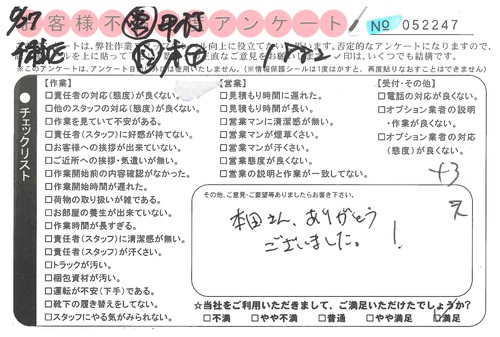 9/27
お客様不満アンケート
№ 052247
営 中村
本田
1882
ケートは、弊社作業
向上に役立てたい
思います。否定的なアンケートになりますので、
ールを上に貼って
直なご意見をお願い
✓印は、いくつでも結構です。
※このアンケートは、アンケート目的以外には使用いたしません。(※情報保護シールは1度はがすと、再度貼りなおすことはできません。)
チェックリスト
【作業】
□責任者の対応(態度)が良くない。
□他のスタッフの対応(態度)が良くない。
□作業を見ていて不安がある。
□責任者(スタッフ)に好感が持てない。
□お客様への挨拶が出来ていない。
□ご近所への挨拶・気遣いが無い。
□作業開始前の内容確認がなかった。
□作業開始時間が遅れた。
□荷物の取り扱いが雑である。
□お部屋の養生が出来ていない。
□作業時間が長すぎる。
□責任者(スタッフ)に清潔感が無い。
□責任者(スタッフ)が汗くさい。
□トラックが汚い。
□梱包資材が汚い。
□運転が不安(下手)である。
□靴下の履き替えをしてない。
□スタッフにやる気がみられない。
【営業】
□見積もり時間に遅れた。
□見積もり時間が長い。
□営業マンに清潔感が無い。
□営業マンが煙草くさい。
□営業マンが汗くさい。
□営業態度が良くない。
□営業の説明と作業が一致してない。
【受付・その他】
□電話の対応が良くない。
□オプション業者の説明・作業が良くない。
□オプション業者の対応(態度)が良くない。
+3
その他、ご意見・ご要望等ありましたらお書き下さい。
本田さん、ありがとう
ございました。!
☆当社をご利用いただきまして、ご満足いただけたでしょうか?
□不満 □やや不満 □普通 □やや満足 □満足